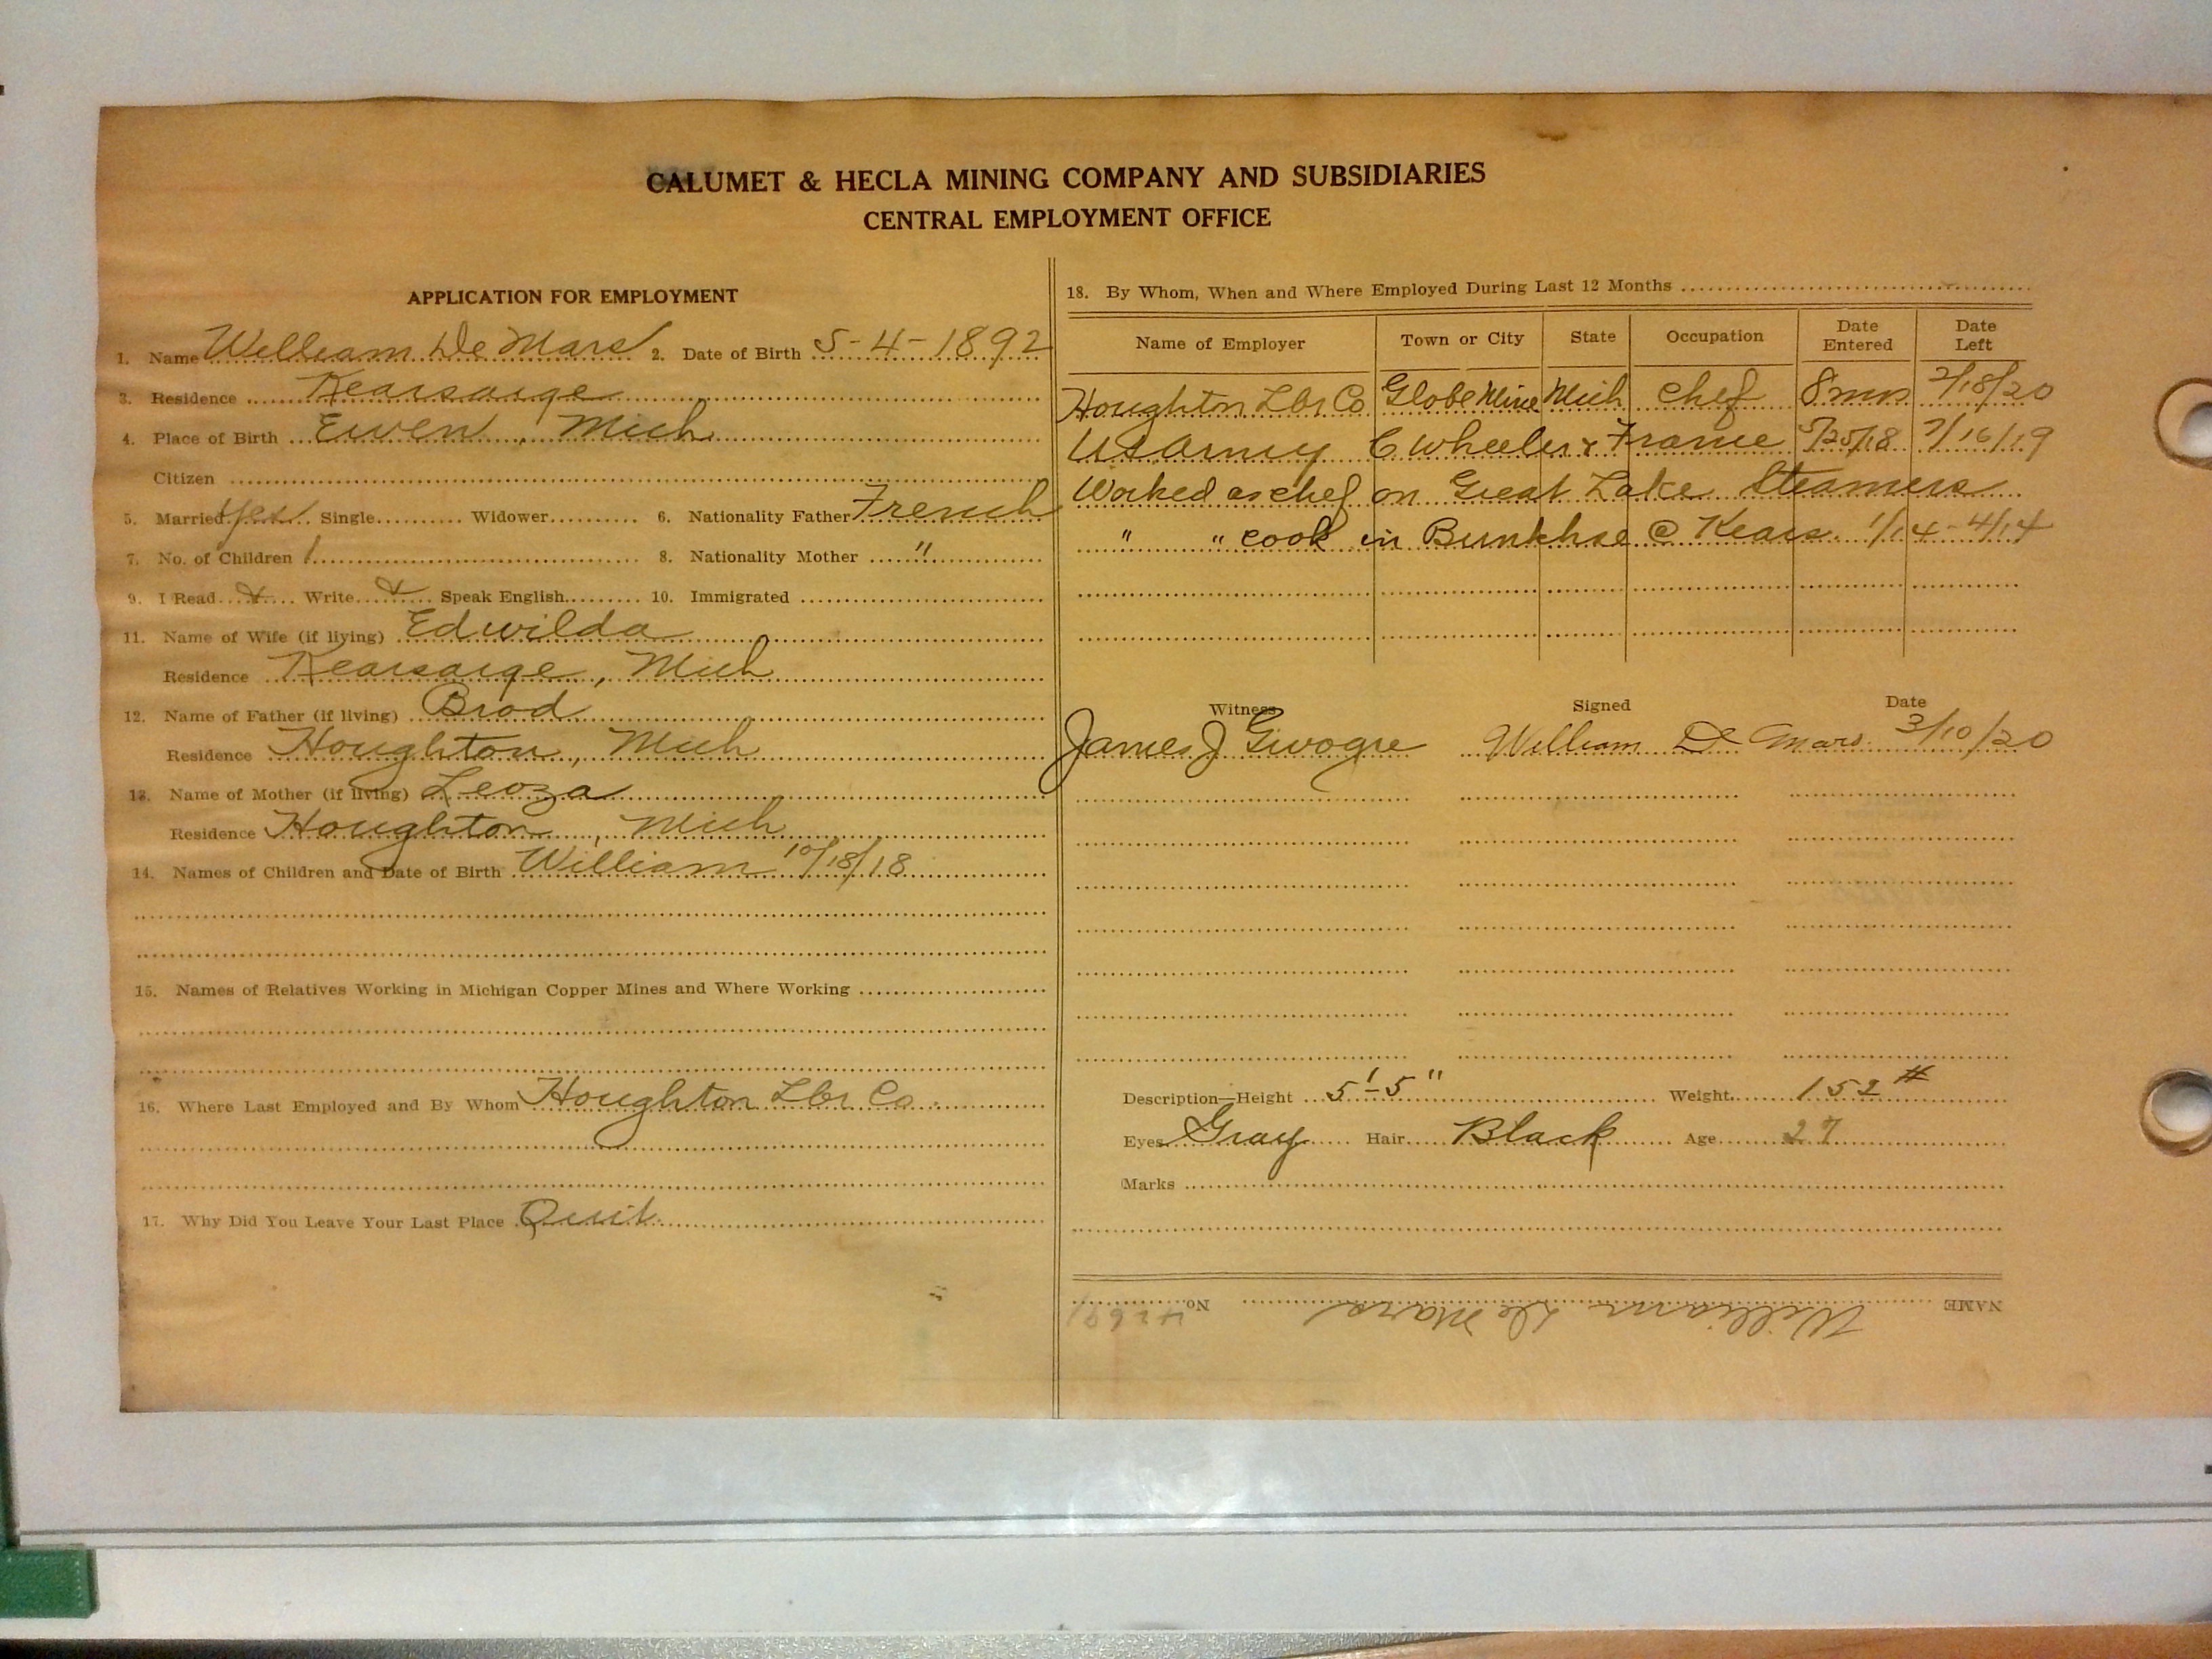 CALUMET & HECLA MINING COMPANY AND SUBSIDIARIES
CENTRAL EMPLOYMENT OFFICE
APPLICATION FOR EMPLOYMENT
1. Name William De Mars 2. Date of Birth 5-4-1892
3. Residence Kearsarge
4. Place of Birth Ewen, Mich
Citizen
5. Married yes Single Widower 6. Nationality Father French
7. No. of Children 1 8. Nationality Mother "
9. I Read Write Speak English 10. Immigrated
11. Name of Wife (if living) Edwilda
Residence Kearsarge, Mich
12. Name of Father (if living) Brod
Residence Houghton, Mich
13. Name of Mother (if living) Leoza
Residence Houghton, Mich
14. Names of Children and Date of Birth William 10/18/18
15. Names of Relatives Working in Michigan Copper Mines and Where Working
16. Where Last Employed and By Whom Houghton Lbr Co.
17. Why Did You Leave Your Last Place Quit
18. By Whom, When and Where Employed During Last 12 Months
Name of Employer Town or City State Occupation Date Entered Date Left
Houghton Lbr Co Globe Mine Mich chef 8 mos 2/18/20
US Army C Wheeler & France 5/25/18 7/16/19
Worked as chef on Great Lake Steamers
" " cook in Bunkhse @ Kears. 1/14-4/14
Witness Signed Date
James J William De Mars 3/10/20
Description—Height 5'-5" Weight 152 #
Eyes Gray Hair Black Age 27
Marks
NAME William De Mars No.